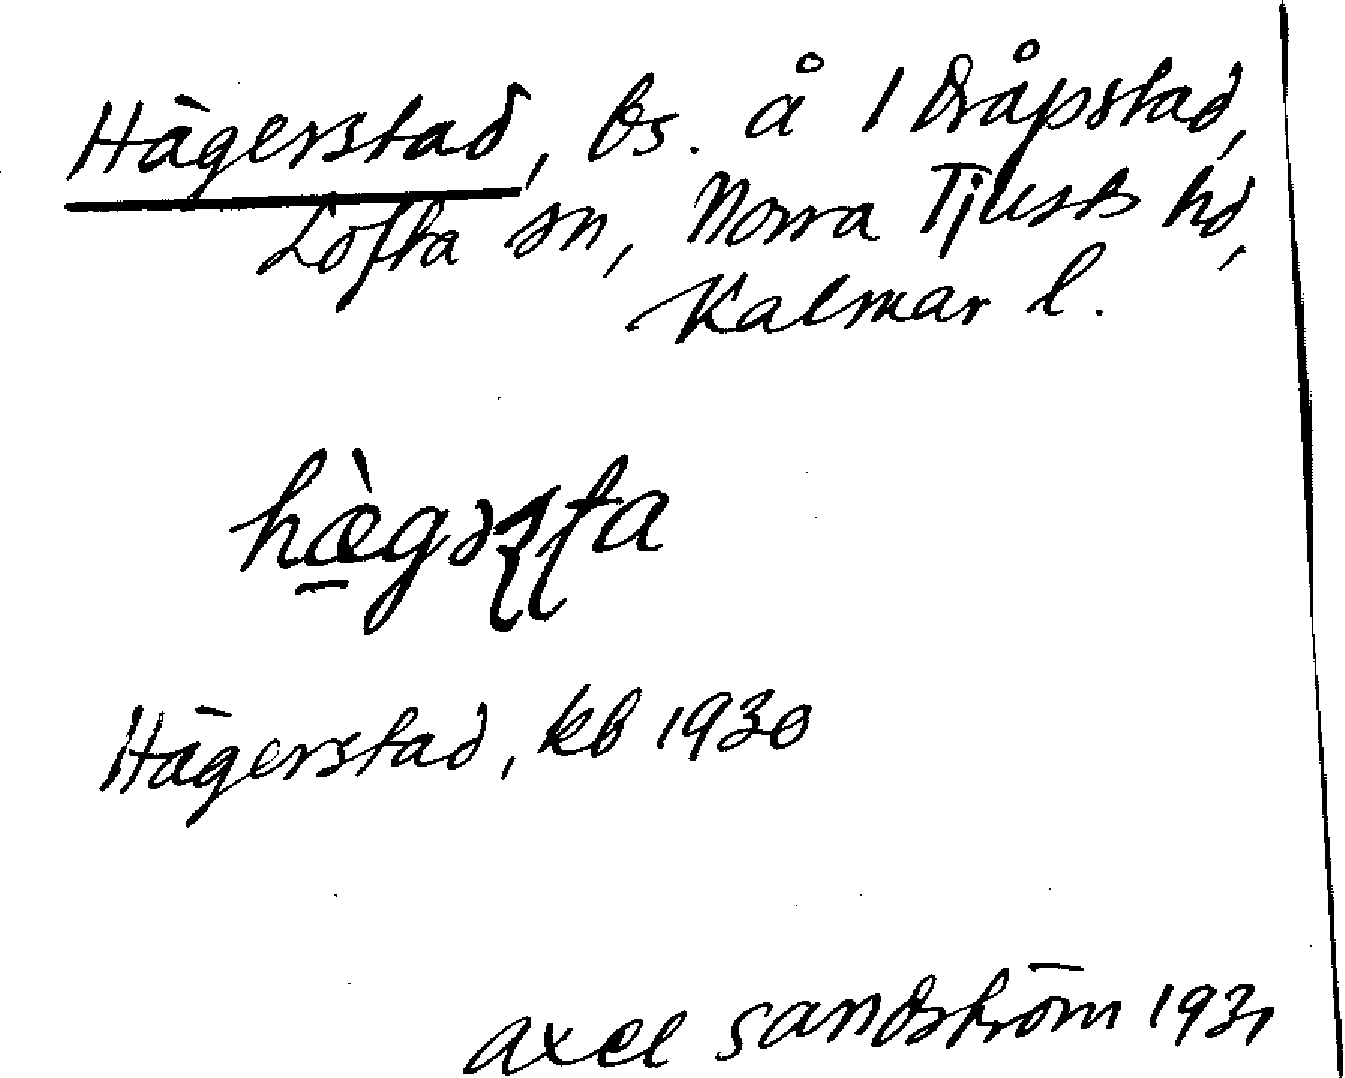 Hägerstad, bs. å 1 Dråpstad,
Lofta sn, Norra Tjusts hd,
Kalmar l.
Hägerstad, kb 1930
Axel Sandström 1931